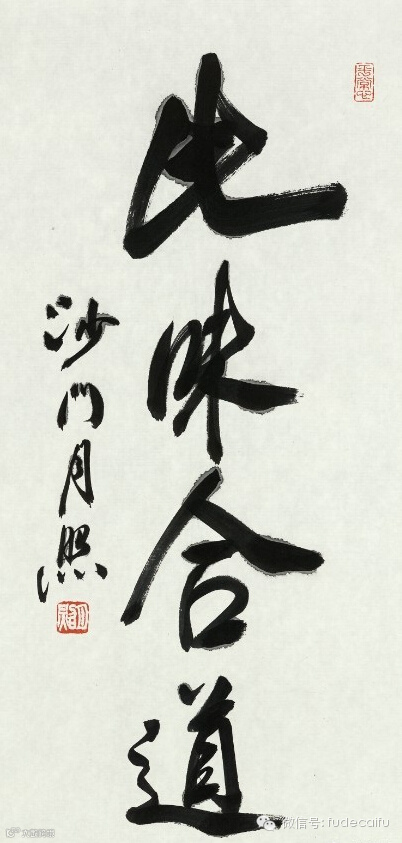 比味合道
沙门月照
微信号: fudecaifu